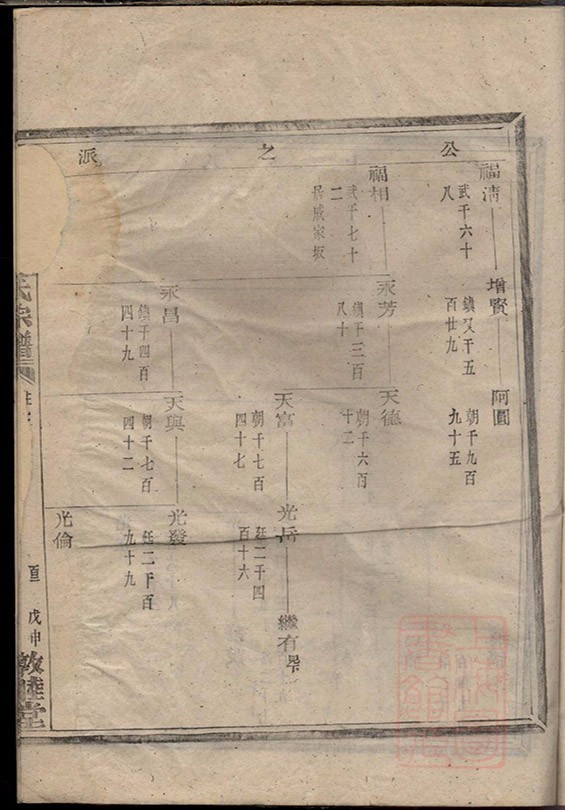 公之派
福清
武千六十
八
增賢
鎮又千五
百廿九
阿圓
朝千九百
九十五
福相
武千七十
二
居戚家坂
永芳
鎮千三百
八十
天德
朝千六百
十二
天富
朝千七百
四十七
光岳
廷二千四
百十六
繼有
永昌
鎮千四百
四十九
天與
朝千七百
四十二
光發
廷二千百
九十九
光倫
氏宗譜
戊申
敦睦堂